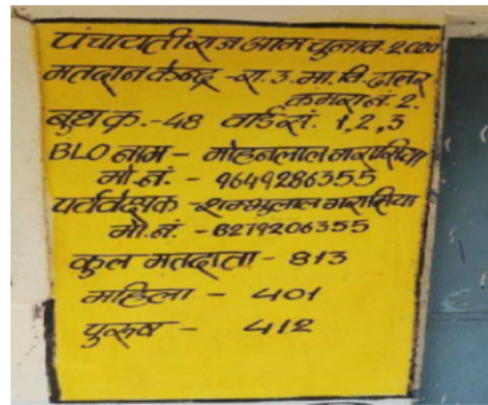 पंचायतीराज आम चुनाव-2020
मतदान केन्द्र -रा.उ.मा.वि.दालर
कमरा नं. 2.
बुथ क्र.-48 वार्ड सं. 1,2,3
BLO नाम - मोहनलाल गरासिया
मो.नं. - 9649286355
पर्यवेक्षक - शम्भुलाल गरासिया
मो.नं. - 8279206355
कुल मतदाता - 813
महिला - 401
पुरूष - 412